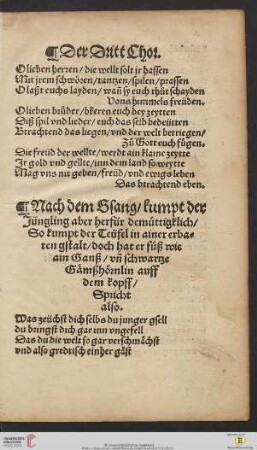 ¶Der Dritt Chor.
O lieben herren / die wellt solt jr hassen
Mit jrem schwören / tantzen / spilen / prassen
O laßt euchs layden / wañ sy euch thůt schayden
Vons himmels freüden.
O lieben brüder / bkeren euch bey zeytten
Diß spil vnd lieder / euch das selb bedeütten
Btrachtend das liegen / vnd der welt betriegen /
Zů Gott euch fügen.
Die freüd der wellte / werdt ain klaine zeytte
Jr gold vnd gellte / inn dem land so weytte
Mag vns nit geben / freüd / vnd ewigs leben
Das btrachtend eben.
¶Nach dem Gsang / kumpt der
Jüngling aber herfür demüttigklich /
So kumpt der Teüfel in ainer erba-
ren gstalt / doch hat er füß wie
ain Ganß / vñ schwartze
Gämßhörnlin auff
dem kopff /
Spricht
also.
Was zeüchst dich selbs du junger gsell
du bringst dich gar inn vngefell
Das du die welt so gar verschmächst
vnd also gredtisch einher gäst